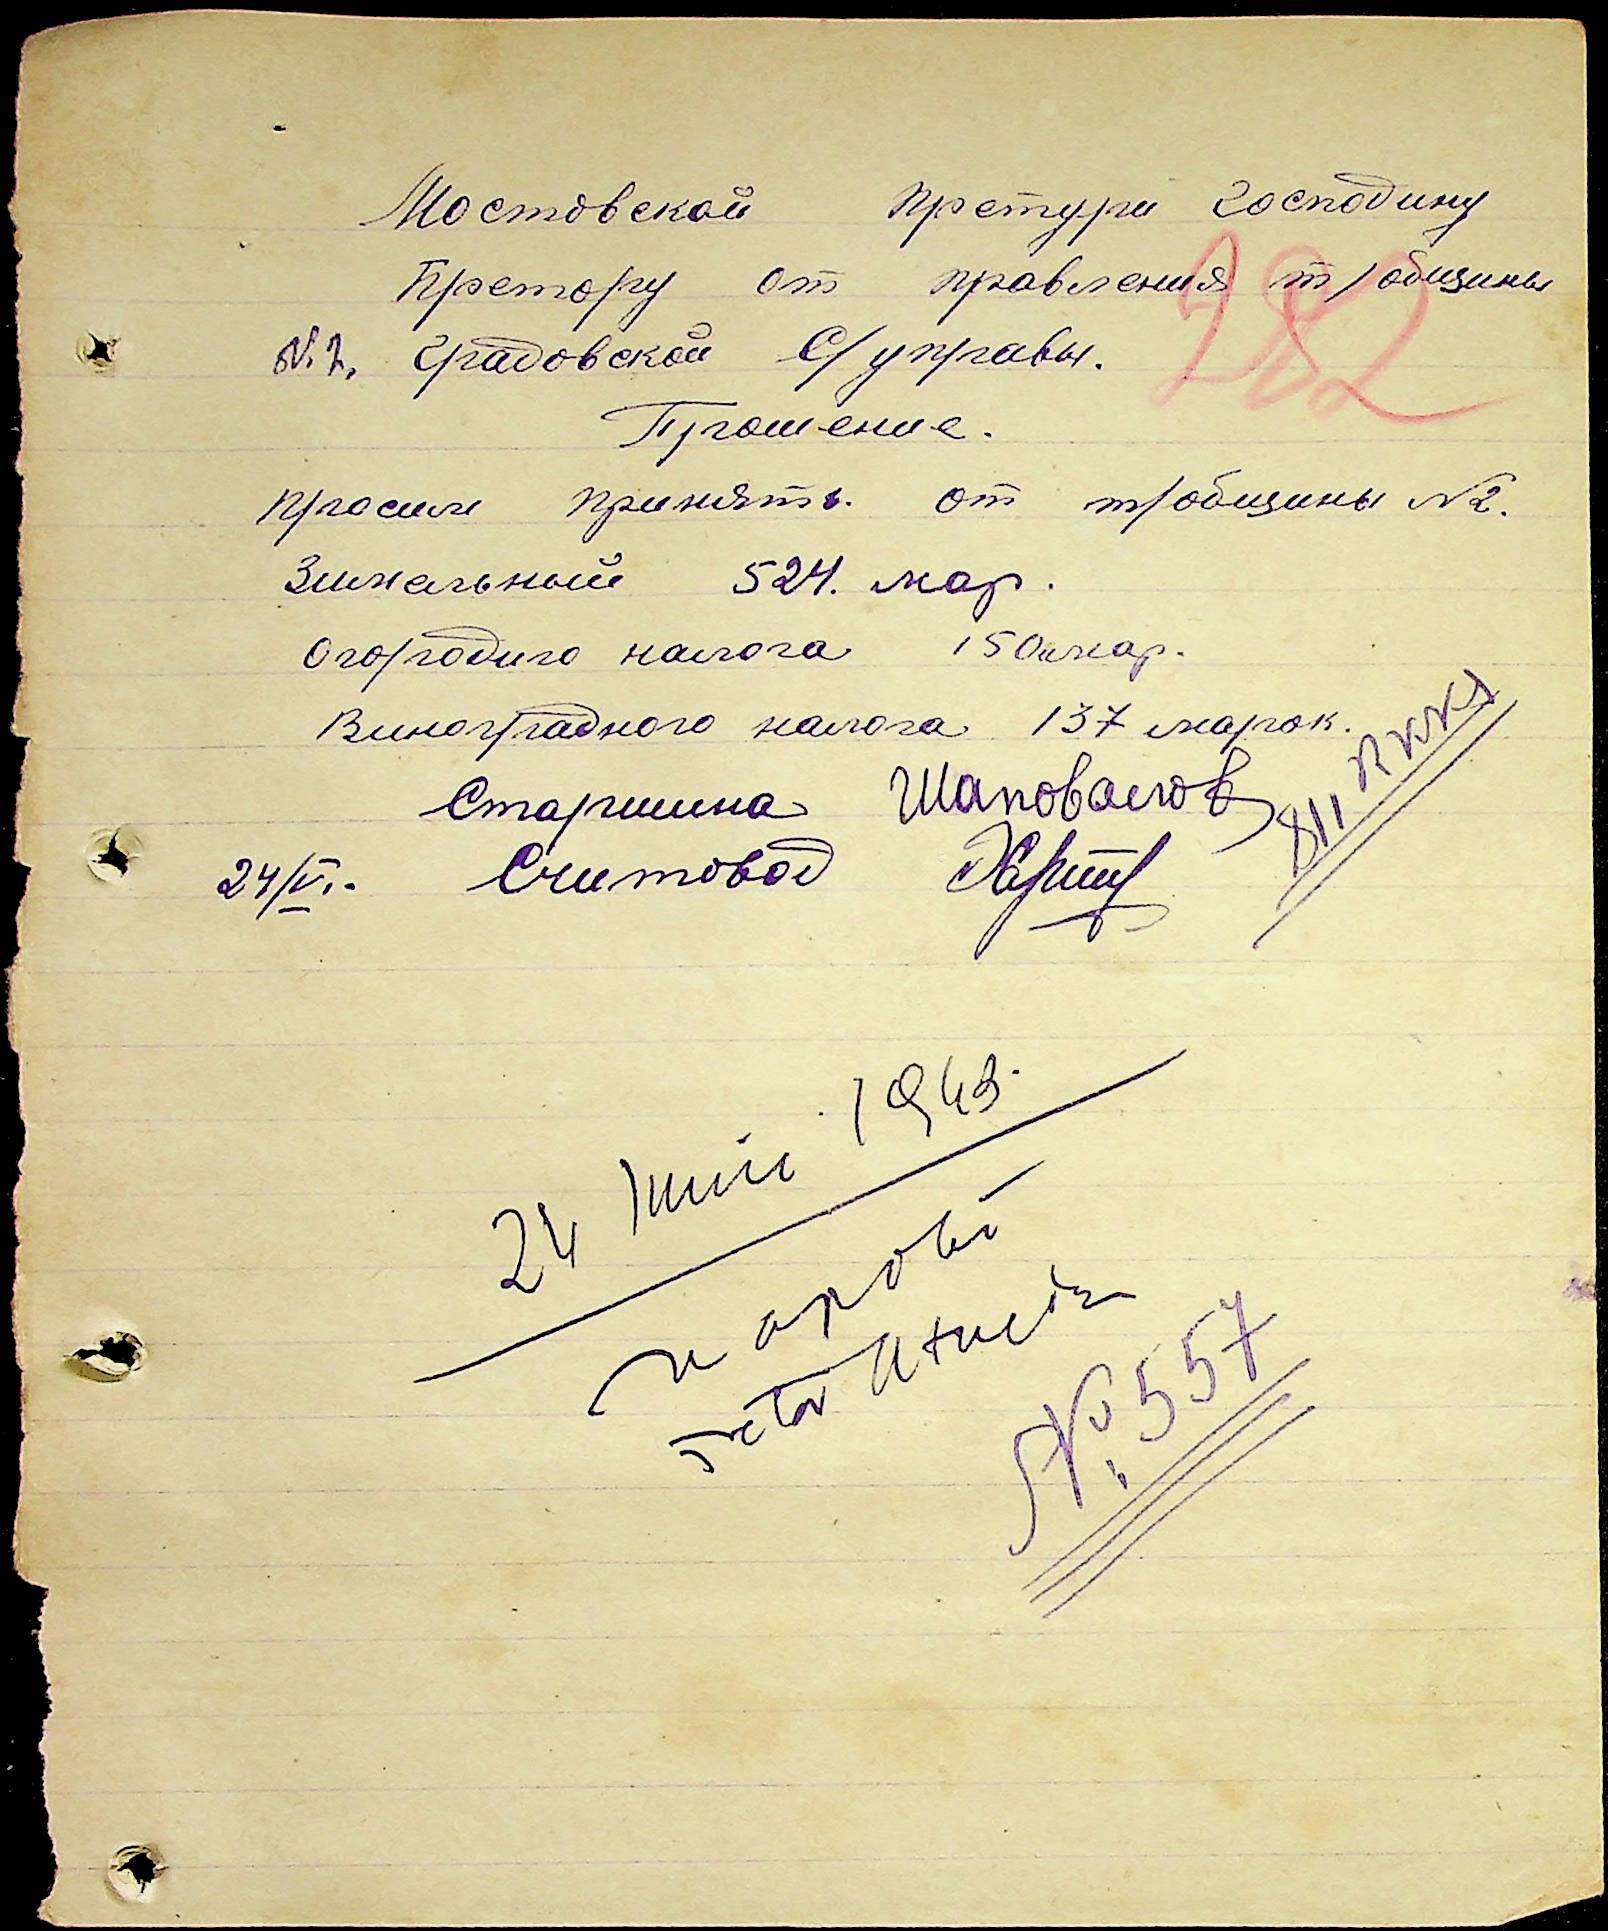 Мостовской претури господину
282
Претору от правления т/общины
№ 2. Градовской С/управы.
Прошение.
Просим принять. от т/общины № 2.
Зимельный 524. мар.
Огородниго налога 150 мар.
Виноградного налога 137 марок.
811,
Старшина Шаповалов
24/VI. Считовод
24 Iunii 1943.
№ 557